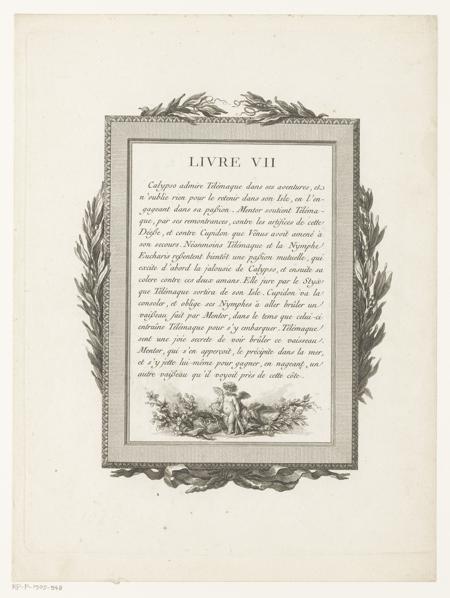 LIVRE VII
Calypso admire Télémaque dans ses aventures, et
n'oublie rien pour le retenir dans son Isle, en l'en-
gageant dans sa passion. Mentor soutient Téléma-
que, par ses remontrances, contre les artifices de cette
Déesse, et contre Cupidon que Vénus avoit amené à
son secours. Néanmoins Télémaque et la Nymphe
Eucharis ressentent bientôt une passion mutuelle, qui
excite d'abord la jalousie de Calypso, et ensuite sa
colere contre ces deux amans. Elle jure par le Styx
que Télémaque sortira de son Isle. Cupidon va la
consoler, et oblige ses Nymphes à aller brûler un
vaisseau fait par Mentor, dans le tems que celui-ci
entraîne Télémaque pour s'y embarquer. Télémaque
sent une joie secrete de voir brûler ce vaisseau.
Mentor, qui s'en apperçoit, le précipite dans la mer,
et s'y jette lui-même pour gagner, en nageant, un
autre vaisseau qu'il voyoit près de cette côte.
RP-P-1905-948